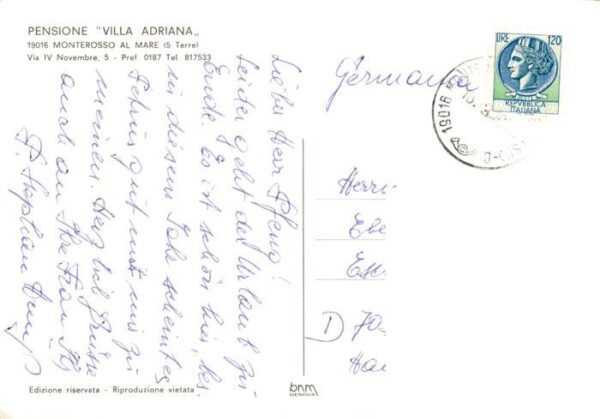 PENSIONE "VILLA ADRIANA„
19016 MONTEROSSO AL MARE (5 Terre)
Via IV Novembre, 5 - Pref. 0187 Tel 817533
LIRE 120
REPVBBLICA
ITALIANA
19016
Germania
Lieber Herr
Leider geht der Urlaub zu
Ende. Es ist schön hier,
in diesem Jahr scheint es
Petrus gut mit mir zu
meinen. Herzliche Grüsse
auch an Ihre Frau
Herrn
Ebe
D 70
Edizione riservata - Riproduzione vietata
bnm
GENOVA